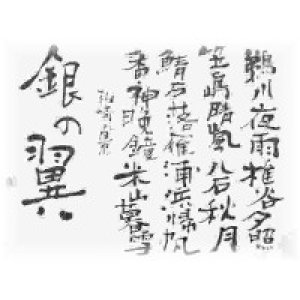 鵜川夜雨椎谷夕照
笠島晴嵐八石秋月
鯖石落雁浦浜帰帆
番神晩鐘米山暮雪
柏崎八景
銀の翼